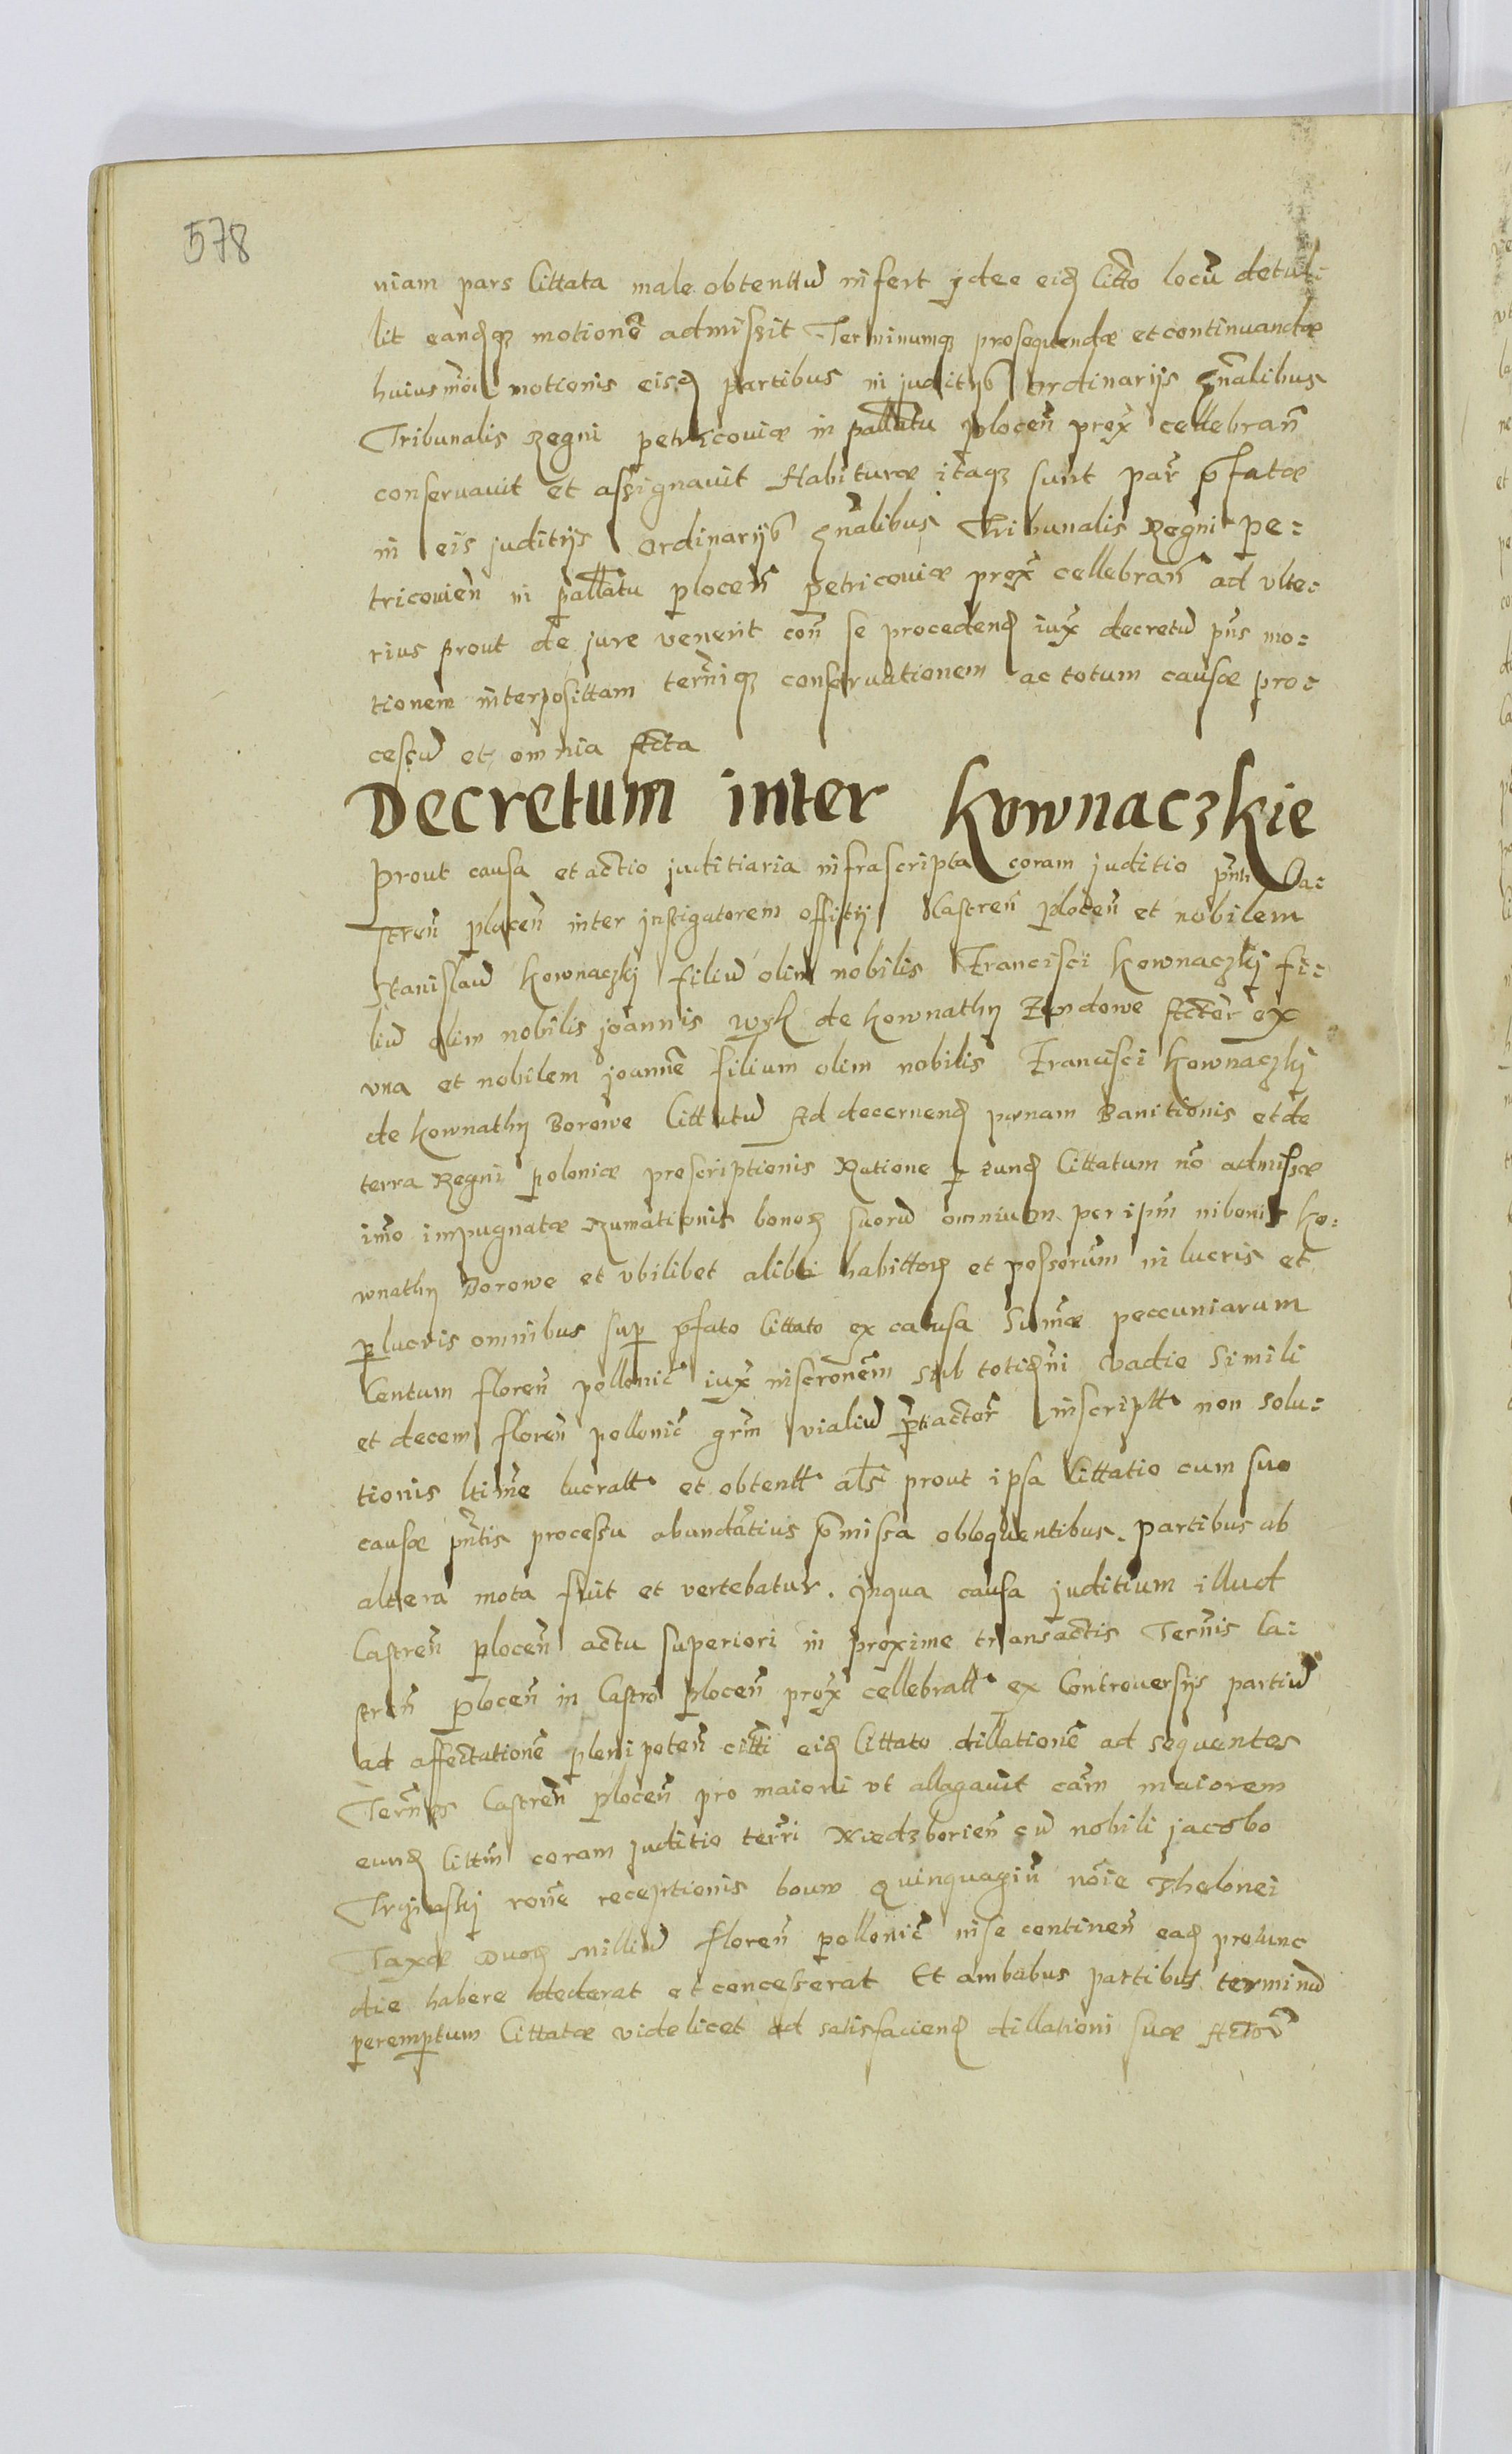 578
niam pars Cittata male obtentũ infert ideo eidē Citto locũ detul:
lit eandēq motionẽ admissit Terminumq prosequendæ et continuandæ
huiusmõi motionis eisdē partibus in juditijs ordinarijs gñalibus
Tribunalis Regni petricoviæ in pallatu plocen̄ prox̃ cellebran̄
conservavit et assignavit Habituræ itaq sunt par̃ p̃fatæ
in eis juditijs ordinarijs gñalibus Tribunalis Regni Pe:
tricovien̄ in pallatu plocen̄ petricoviæ prox̃ cellebran̄ ad ulte:
rius prout de jure venerit con̄ se procedendē iux̃ decretũ pñs mo:
tionem interposittam ter̃niq conservationem ac totum causæ pro:
cessũ et omnia acta
Decretum inter Kownaczkie
Prout causa et actio juditiaria infrascripta coram juditio pñti Ca:
stren̄ plocen̄ inter instigatorem offitij Castren̄ plocen̄ et nobilem
Stanislaũ Kownaczkj filiũ olim nobilis Francisci Kownaczkj fi:
liũ olim nobilis joannis de Kownathÿ Actor̃ ex
una et nobilem joannẽ filium olim nobilis Francisci Kownaczkj
de Kownathÿ Borowe Cittatũ Ad decernendē pœnam Banitionis et de
terra Regni poloniæ proscriptionis Ratione p eundē Cittatum nõ admissæ
imo impugnatæ Rumationis bonorē suorũ omnium per ipm̃ in bonis Ko:
wnathÿ Borowe et ubilibet alibi habittorē et possessorum in lucris et
perlucris omnibus sup p̃fato Cittato ex causa Sumæ peccuniarum
Centum floren̄ pollonic̃ iux̃ inscronẽm sub totidẽni vadio Simili
et decem floren̄ pollonic̃ grm̃ vialiũ actor̃ inscriptt non solu:
tionis ltim̃e lucratt et obtentt als prout ipsa Cittatio cum suo
causæ pñtis processu abundãtius p̃missa obloquentibus. Partibus ab
altera mota fuit et vertebatur. Inqua causa juditium illud
Castren̄ plocen̄ actu superiori in proxime transactis Ter̃nis Ca:
stren̄ plocen̄ in Castro plocen̄ prox̃ cellebratt ex Controversijs partiũ
ad affectationẽ plenipoten̄ citti eidē Cittato dillationẽ ad sequentes
Ter̃nos Castren̄ plocen̄ pro maiori ut allagavit cam̃ maiorem
eundē Cittm̃ coram juditio terr̃i Niedzborien̄ cũ nobili jacobo
ron̄e receptionis boum quinquagin̄ nõie Thelonei
Taxæ Duorē milliũ floren̄ pollonic̃ in se continen̄ eadē protunc
die habere dederat et concesserat Et ambabus partibus terminũ
peremptum Cittatæ videlicet ad satisfaciendē dillationi suæ Actor̃